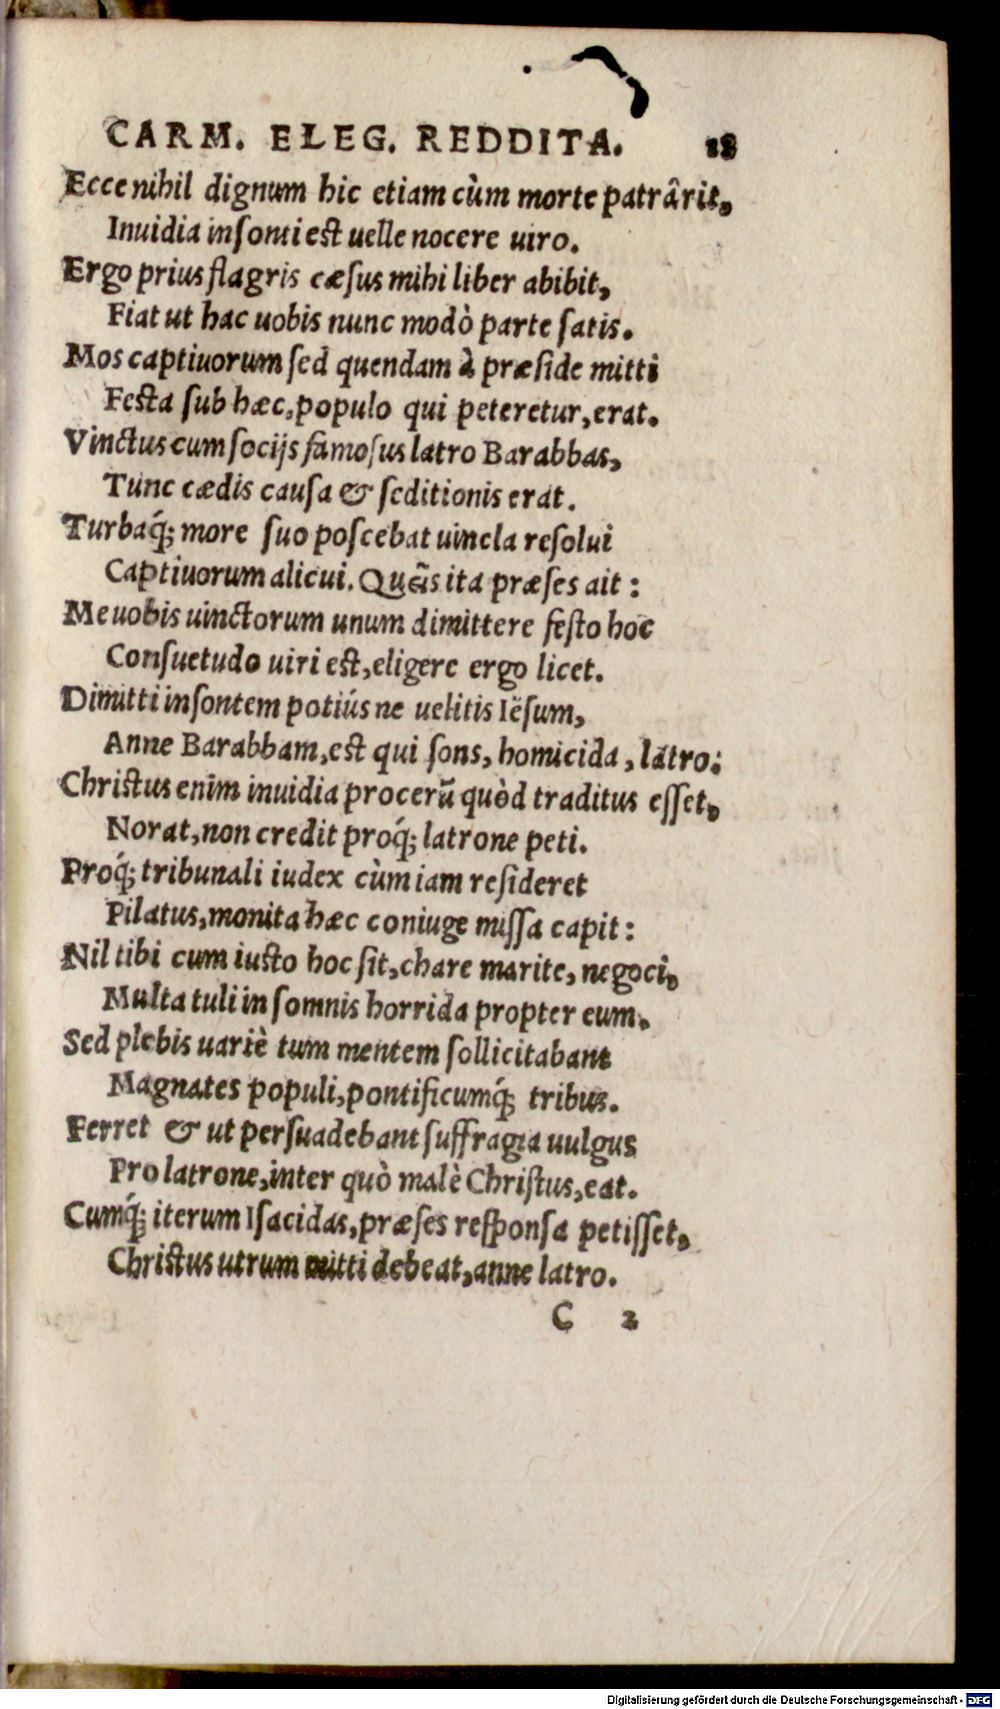 CARM. ELEG. REDDITA. 18
Ecce nihil dignum hic etiam cùm morte patrârit,
Inuidia insonti est uelle nocere uiro.
Ergo prius flagris cæsus mihi liber abibit,
Fiat ut hac uobis nunc modò parte satis.
Mos captiuorum sed quendam à præside mitti
Festa sub hæc, populo qui peteretur, erat.
Vinctus cum socijs famosus latro Barabbas,
Tunc cædis causa & seditionis erat.
Turbaq́; more suo poscebat uincla resolui
Captiuorum alicui. Queîs ita præses ait:
Me uobis uinctorum unum dimittere festo hoc
Consuetudo uiri est, eligere ergo licet.
Dimitti insontem potiús ne uelitis Iësum,
Anne Barabbam, est qui sons, homicida, latro:
Christus enim inuidia procerũ quòd traditus esset,
Norat, non credit proq́; latrone peti.
Proq́; tribunali iudex cùm iam resideret
Pilatus, monita hæc coniuge missa capit:
Nil tibi cum iusto hoc sit, chare marite, negoci,
Multa tuli in somnis horrida propter eum.
Sed plebis uariè tum mentem sollicitabant
Magnates populi, pontificumq́; tribus.
Ferret & ut persuadebant suffragia uulgus
Pro latrone, inter quò malè Christus, eat.
Cumq́; iterum Isacidas, præses responsa petisset,
Christus utrum mitti debeat, anne latro.
C 2
Digitalisierung gefördert durch die Deutsche Forschungsgemeinschaft - DFG